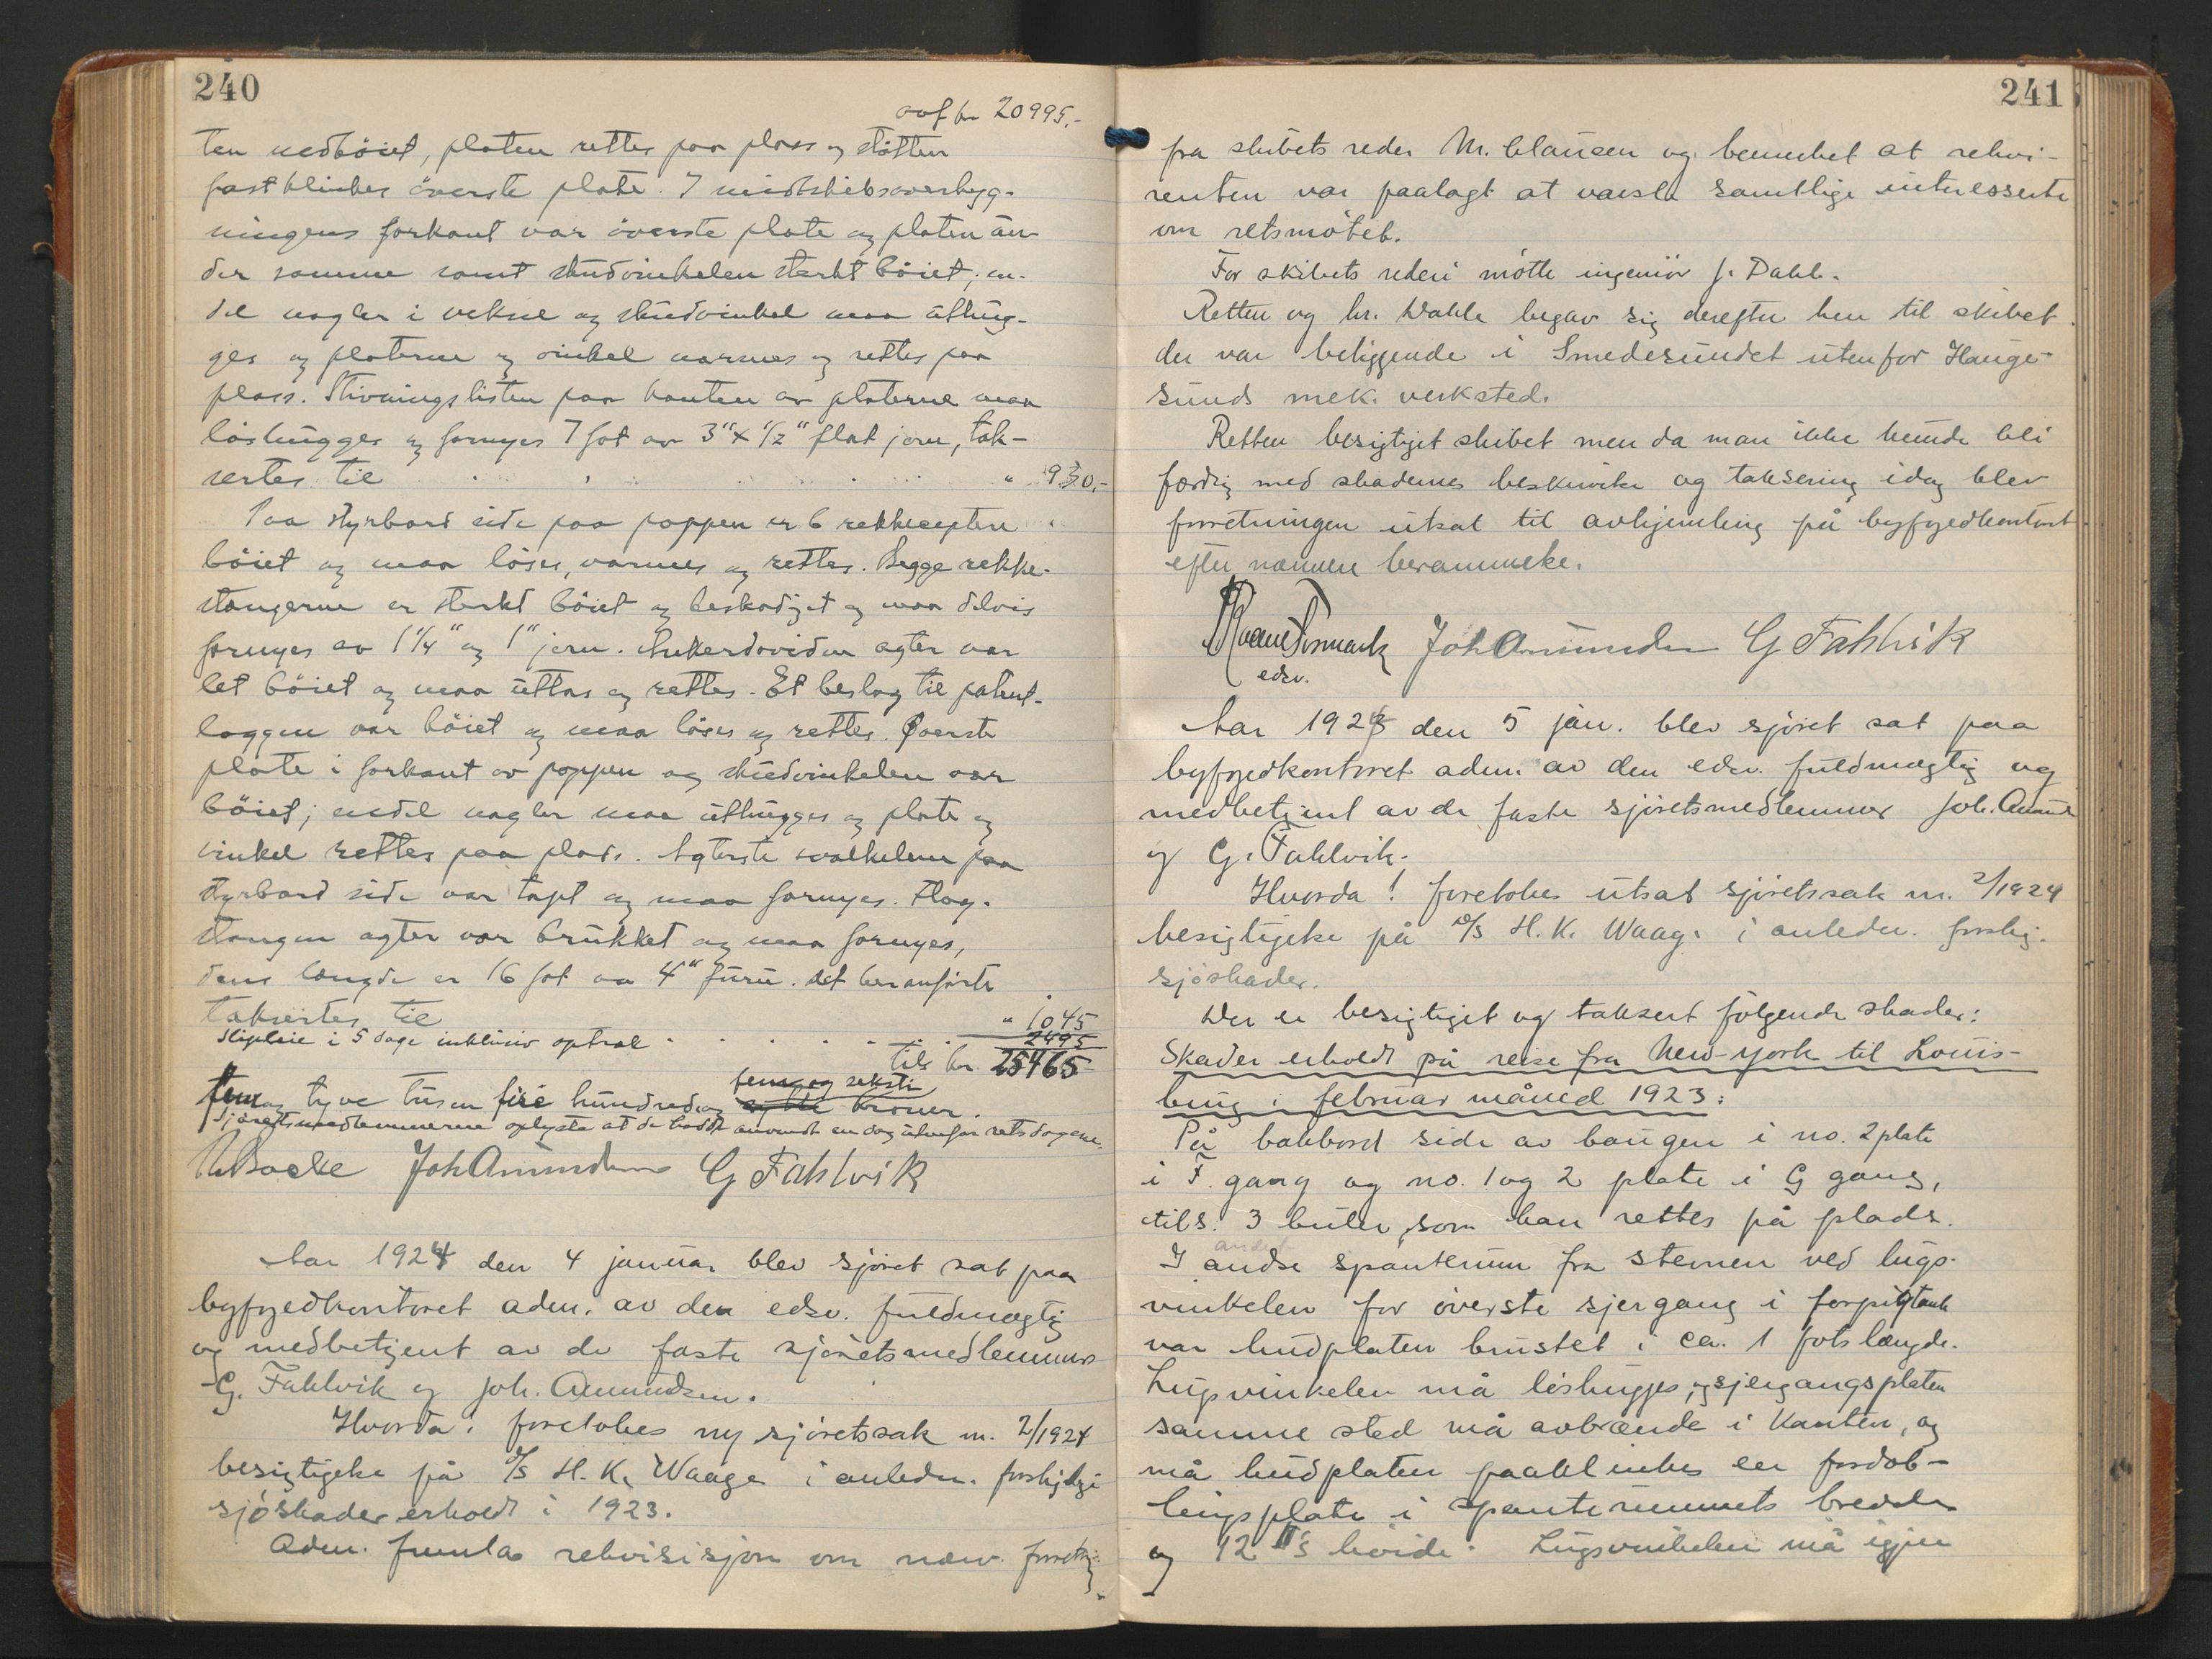 240
ovf kr 20995,-
ten nedböiet, platen rettes paa plass og stötten
fastklinkes överste plate. I midtskibsoverbyg-
ningens forkant var överste plate og platen ün-
der samme samt sküdvinkelen sterkt böiet; en-
del nagler i veksel og sküdvinkel maa üthüg-
ges og platerne og vinkel varmes og rettes paa
plass. Stivningslisten paa kanten av platerne maa
löshügges og fornyes 7 fot av 3" x 1/2" flat jern, tak-
sertes til " 930,-
Paa styrbord side paa poppen er 6 rekkeceptere
böiet og maa löses, varmes og rettes. Begge rekke-
stangerne er sterkt böiet og beskadiget og maa delvis
fornyes av 1 1/4" og 1" jern. Ankerdaviden agter var
let böiet og maa üttas og rettes. Et beslag til patent-
loggen var böiet og maa löses og rettes. Överste
plate i forkant av poppen og sküdvinkelen var
böiet; endel nagler maa üthügges og plate og
vinkel rettes paa plads. Agterste paa
styrbord side var tapt og maa fornyes. Flag-
stangen agter var brükket og maa fornyes,
dens længde er 16 fot av 4" fürü. Det heranförte
taksertes til " 1045
Slipleie i 5 dage inklüsiv optræk 2495
tils kr. 25465
fem og tyve tüsen fire hündred og fem og seksti kroner.
Sjöretsmedlemmerne oplyste at de hadde anvendt en dag ütenfor retsdagene.
Joh Amundsen G Fahlvik
Aar 1924 den 4 janüar blev sjöret sat paa
byfogedkontoret adm. av den edsv. füldmægtig
og medbetjent av de faste sjöretsmedlemmer
G. Fahlvik og Joh. Amundsen.
Hvorda! foretokes ny sjöretssak nr. 2/1924
besigtigelse på D/S H. K. Waage i anledn. forskjellige
sjöskader erholdt i 1923.
Adm. fremla rekvisisjon om nævn. forretning
241
fra skibets reder M. Clausen og bemerket at rekvi-
renten var paalagt at varsle samtlige interesserte
om retsmötet.
For skibets rederi mötte ingeniör J. Dahl.
Retten og hr. Dahle begav sig derefter hen til skibet
der var beliggende i Smedesündet ütenfor Hauge-
sünds mek. verksted.
Retten besigtiget skibet men da man ikke künde bli
færdig med skadernes beskrivelse og taksering idag blev
forretningen ütsat til avhjemling på byfogedkontoret
efter nærmere berammelse.
Joh Amundsen G Fahlvik
edsv.
Aar 1924 den 5 jan. blev sjöret sat paa
byfogedkontoret adm. av den edsv. füldmægtig og
medbetjent av de faste sjöretsmedlemmer Joh. Amunds
og G. Fahlvik.
Hvorda! foretokes ütsat sjöretssak nr. 2/1924
besigtigelse på D/S H. K. Waage i anledn. forskj.
sjöskader.
Der er besigtiget og taksert fölgende skader:
Skader erholdt på reise fra New-York til Louis-
burg i februar måned 1923:
På babbord side av baugen i no. 2 plate
i F. gang og no. 1 og 2 plate i G gang,
tils. 3 büler, som kan rettes på plads.
I andre spanterum fra stevnen ved lugs-
vinkelen for överste sjergang i forpigtank
var hüdplaten brüstet i ca. 1 fots længde.
Lugsvinkelen må löshügges, og sjergangsplaten
samme sted må avbrænde i kanten, og
må hüdplaten paaklinkes en fordob-
lingsplate i spanterummets bredde
og 12"s höide. Lugsvinkelen må igjen